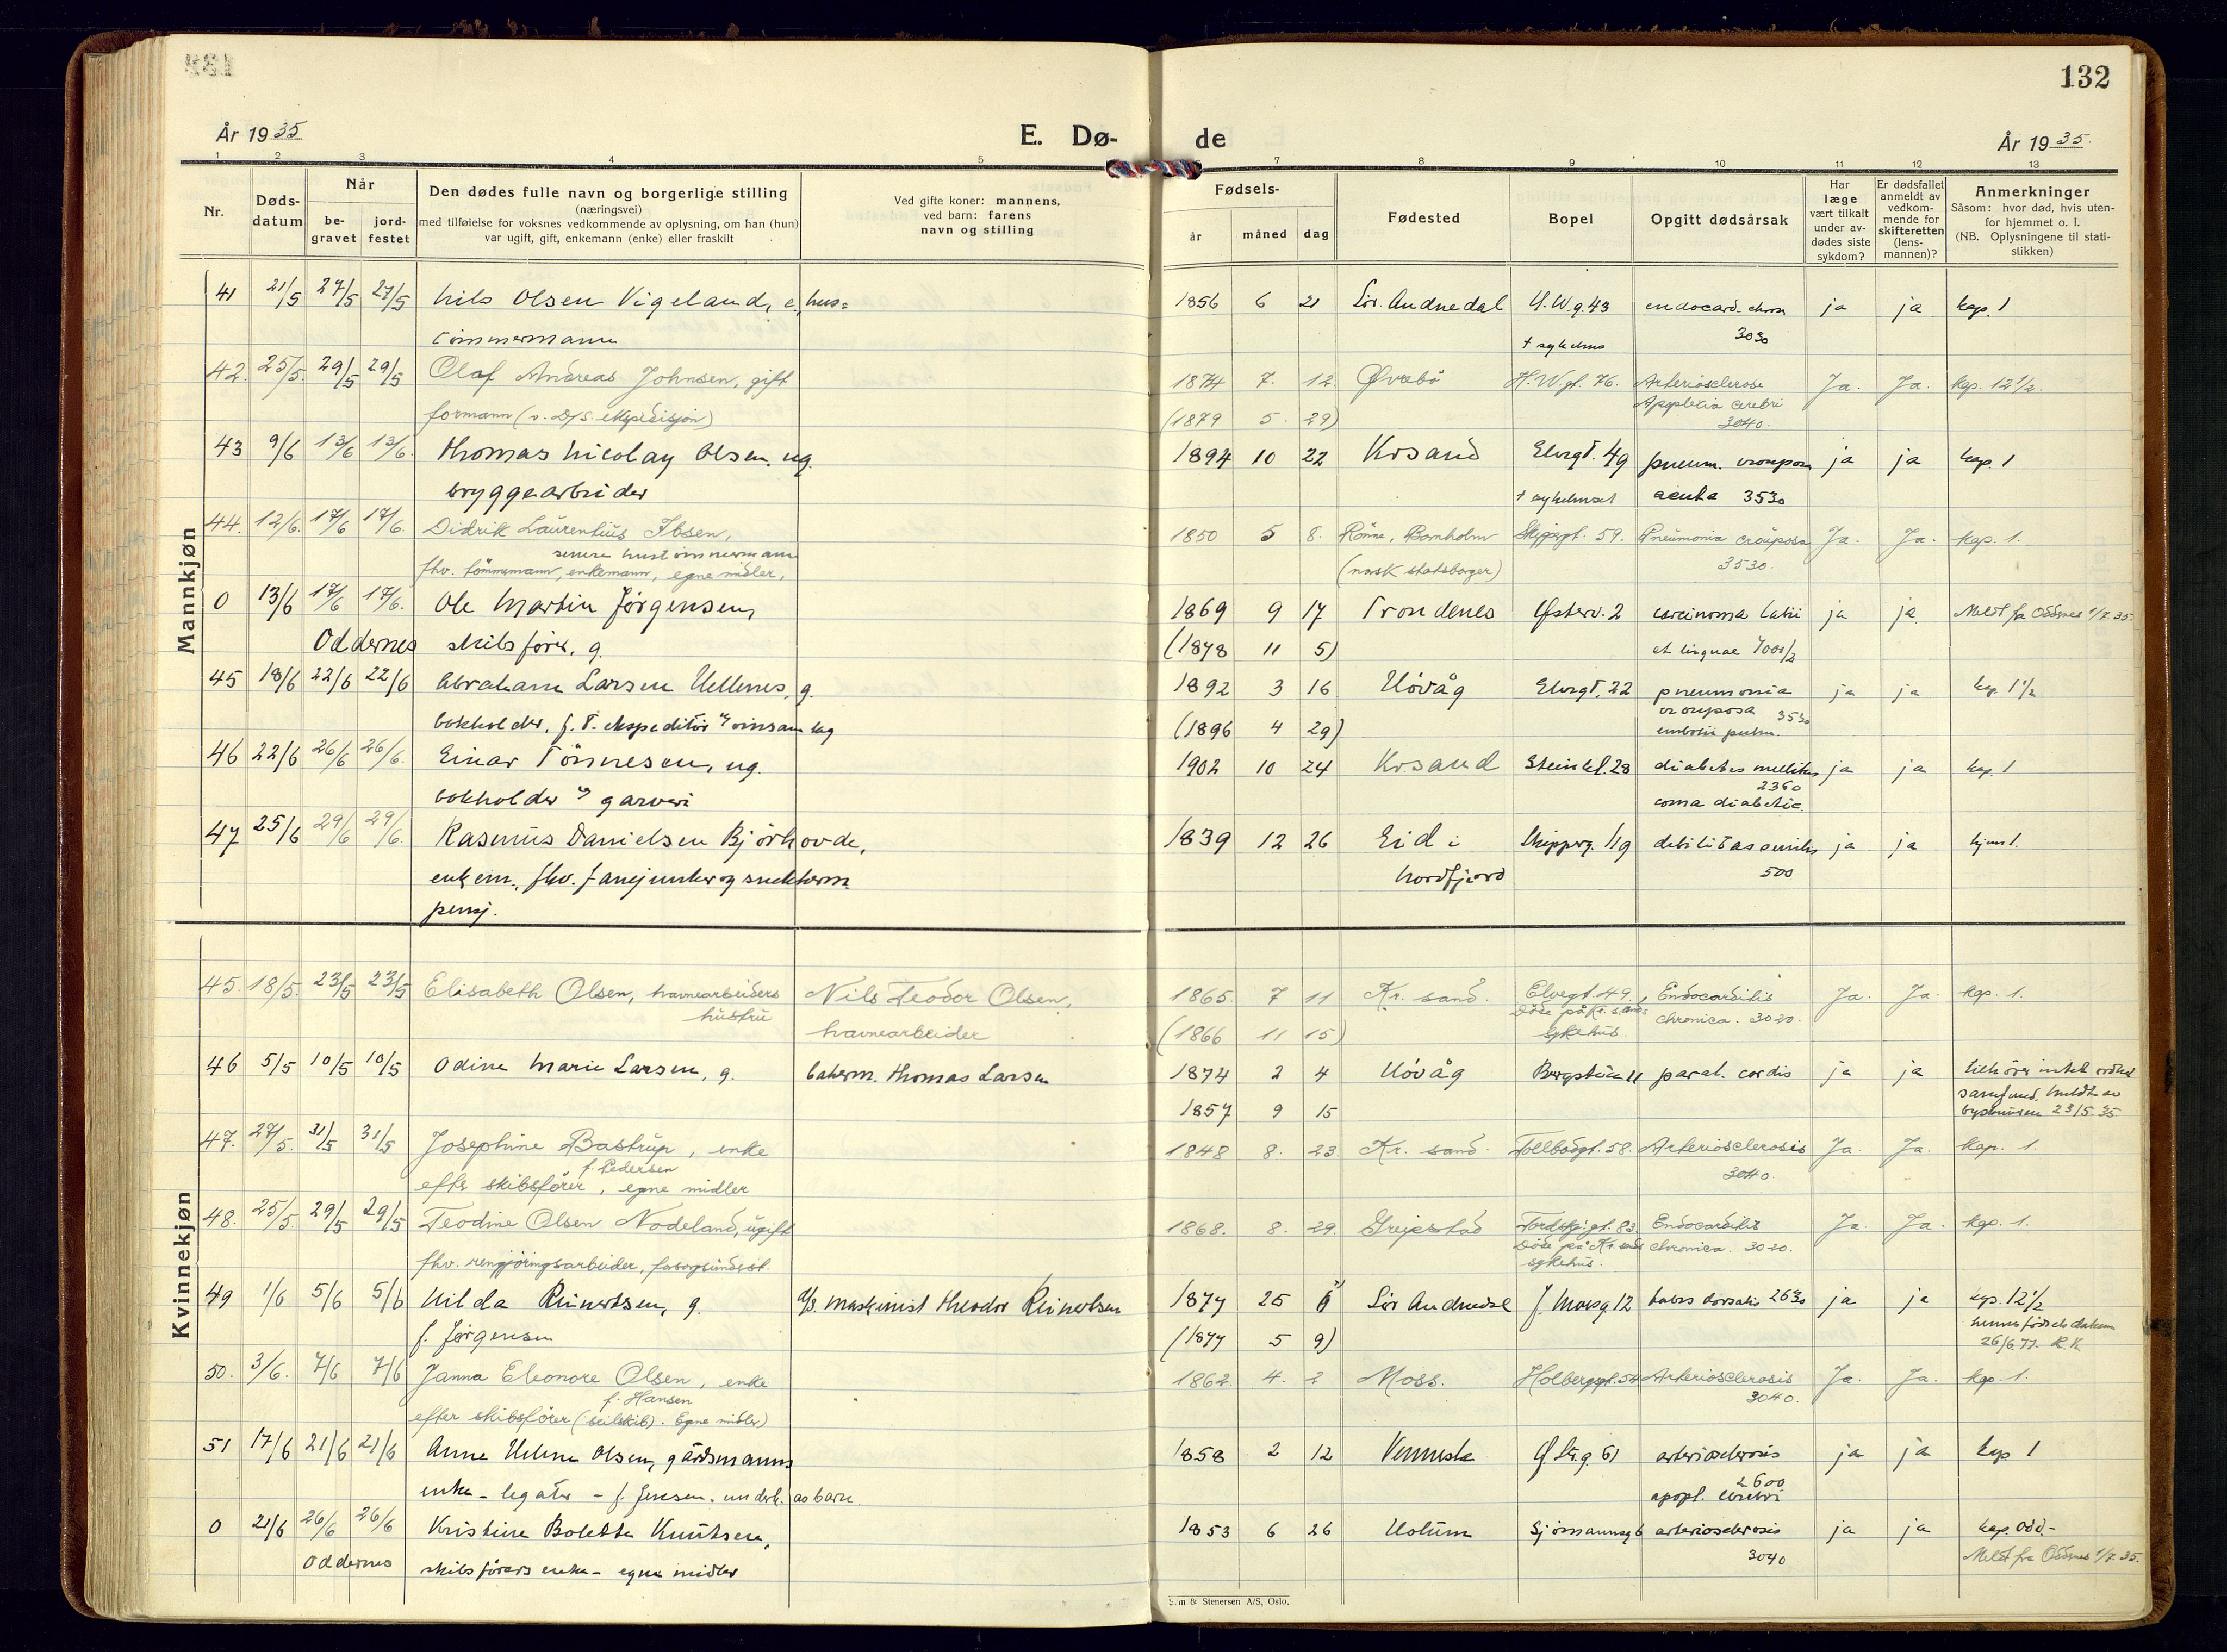 132
År 1935
E. Dø-
de
År 1935.
1 2 3 4 5 7 8 9 10 11 12 13
Nr.
Døds-
datum
Når
be-
gravet
jord-
festet
Den dødes fulle navn og borgerlige stilling
(næringsvei)
med tilføielse for voksnes vedkommende av oplysning, om han (hun)
var ugift, gift, enkemann (enke) eller fraskilt
Ved gifte koner: mannens,
ved barn: farens
navn og stilling
Fødsels-
år
måned
dag
Fødested
Bopel
Opgitt dødsårsak
Har
læge
vært tilkalt
under av-
dødes siste
sykdom?
Er dødsfallet
anmeldt av
vedkom-
mende for
skifteretten
(lens-
mannen)?
Anmerkninger
Såsom: hvor død, hvis uten-
for hjemmet o. l.
(NB. Oplysningene til stati-
stikken)
Mannkjøn
41 21/5 27/5 27/5 Nils Olsen Vigeland, e., hus= 1856 6 21 Sør. Audnedal H.W.g.43 endocard. chron ja ja kap. 1
tømmermann † sykehus 3030
42. 25/5. 29/5 29/5 Olaf Andreas Johnsen, gift 1874 7. 12. Øvrebö H.W.gt. 76. Arteriosclerose Ja. Ja. kap. 12 1/2.
formann (v. D/S. ekspedisjon) (1879 5. 29) Apoplexia cerebri
3040.
43 9/6 13/6 13/6. Thomas Nicolay Olsen, ug. 1894 10 22 Krsand Elvegt. 49 pneum. crouposa ja ja kap. 1
bryggearbeider † sykehuset acuta 3530
44. 12/6. 17/6 17/6. Didrik Laurentius Ibsen, 1850 5 8. Rønne, Bornholm Skippergt. 59. Pneumonia crouposa Ja. Ja. kap. 1.
senere hustømmermann
fhv. tömmermann, enkemann, egne midler, (norsk statsborger) 3530.
0 13/6 17/6 17/6. Ole Martin Jørgensen, 1869 9 17 Trondenes Østerv. 2 carcinoma labii ja ja Meldt fra Oddernes 1/7. 35.
Oddernes skibsfører, g. (1878 11 5) et linguae
45 18/6 22/6 22/6 Abraham Larsen Hellenes, g. 1892 3 16 Høvåg Elvegt. 22 pneumonia ja ja kap. 1 1/2
bokholder, f. t. ekspeditør (1896 4 29) crouposa 3530
embolia pulm.
46 22/6 26/6 26/6. Einar Tønnesen, ug. 1902 10 24 Krsand Steinkl. 28 diabetes mellitus ja ja kap. 1
2360
bokholder garveri coma diabetic.
47 25/6 29/6 29/6. Rasmus Danielsen Bjørhovde, 1839 12 26 Eid i Skipperg. 119 debilitas senilis ja ja hjem 1.
enkem., fhv. fanejunker og snekkerm. Nordfjord 500
pensj.
Kvinnekjøn
45. 18/5. 23/5 23/5 Elisabeth Olsen, havnearbeiders Nils Teodor Olsen, 1865. 7 11 Kr. sand. Elvegt. 49. Endocarditis Ja. Ja. kap. 1.
hustru havnearbeider (1866 11 15) Döde på Kr. sands chronica. 3020.
sykehus.
46 5/5 10/5 10/5 Odine Marie Larsen, g. bakerm. Thomas Larsen 1874 2 4 Høvåg Bergstien 11 paral. cordis ja ja tilhører intet ordnet
1857 9 15 samfund. Meldt av
byskriveren 23/5.35
47. 27/5. 31/5 31/5 Josephine Bastrup, enke 1848 8. 23. Kr. sand. Tollbodgt. 58. Arteriosclerosis Ja. Ja. kap. 1.
f. Pedersen
efter skibsfører, egne midler 3040.
48. 25/5. 29/5 29/5 Teodine Olsen Nodeland, ugift 1868. 8. 29. Greipstad Tordenskj.gt. 83. Endocarditis Ja. Ja. kap. 1.
fhv. rengjöringsarbeider, forsorgsunderst. Döde på Kr. sands chronica. 3020.
sykehus.
49 1/6 5/6 5/6 Hilda Reinertsen, g. maskinist Theodor Reinertsen 1877 25 6 Sør Audnedal J. Moesg. 12 tabes dorsalis 2630 ja ja kap. 12 1/2
f. Jørgensen (1877 5 9) hennes fødselsdatum
26/6.77. R.K.
50. 3/6. 7/6 7/6 Janna Eleonore Olsen, enke 1862. 4. 2 Moss. Holbergsgt. 54 Arteriosclerosis Ja. Ja. kap. 1.
f. Hansen
efter skibsfører (seilskib). Egne midler) 3040.
51 17/6 21/6 21/6 Anne Helene Olsen, gårdsmanns 1858 2 12 Vennesla Ø. Str.g. 61 arteriosclerosis ja ja kap 1
2600
enke - legater - f. Jensen. underh. av barn. apopl. cerebri
0 21/6 26/6 26/6 Kristine Bolette Knutsen, 1853 6 26 Holum Sjømannsg 6 arteriosclerosis ja ja kap. Odd.-
Oddernes skibsførers enke - egne midler 3040 Meldt fra Oddernes 1/7. 35.
& Stenersen A/S, Oslo.